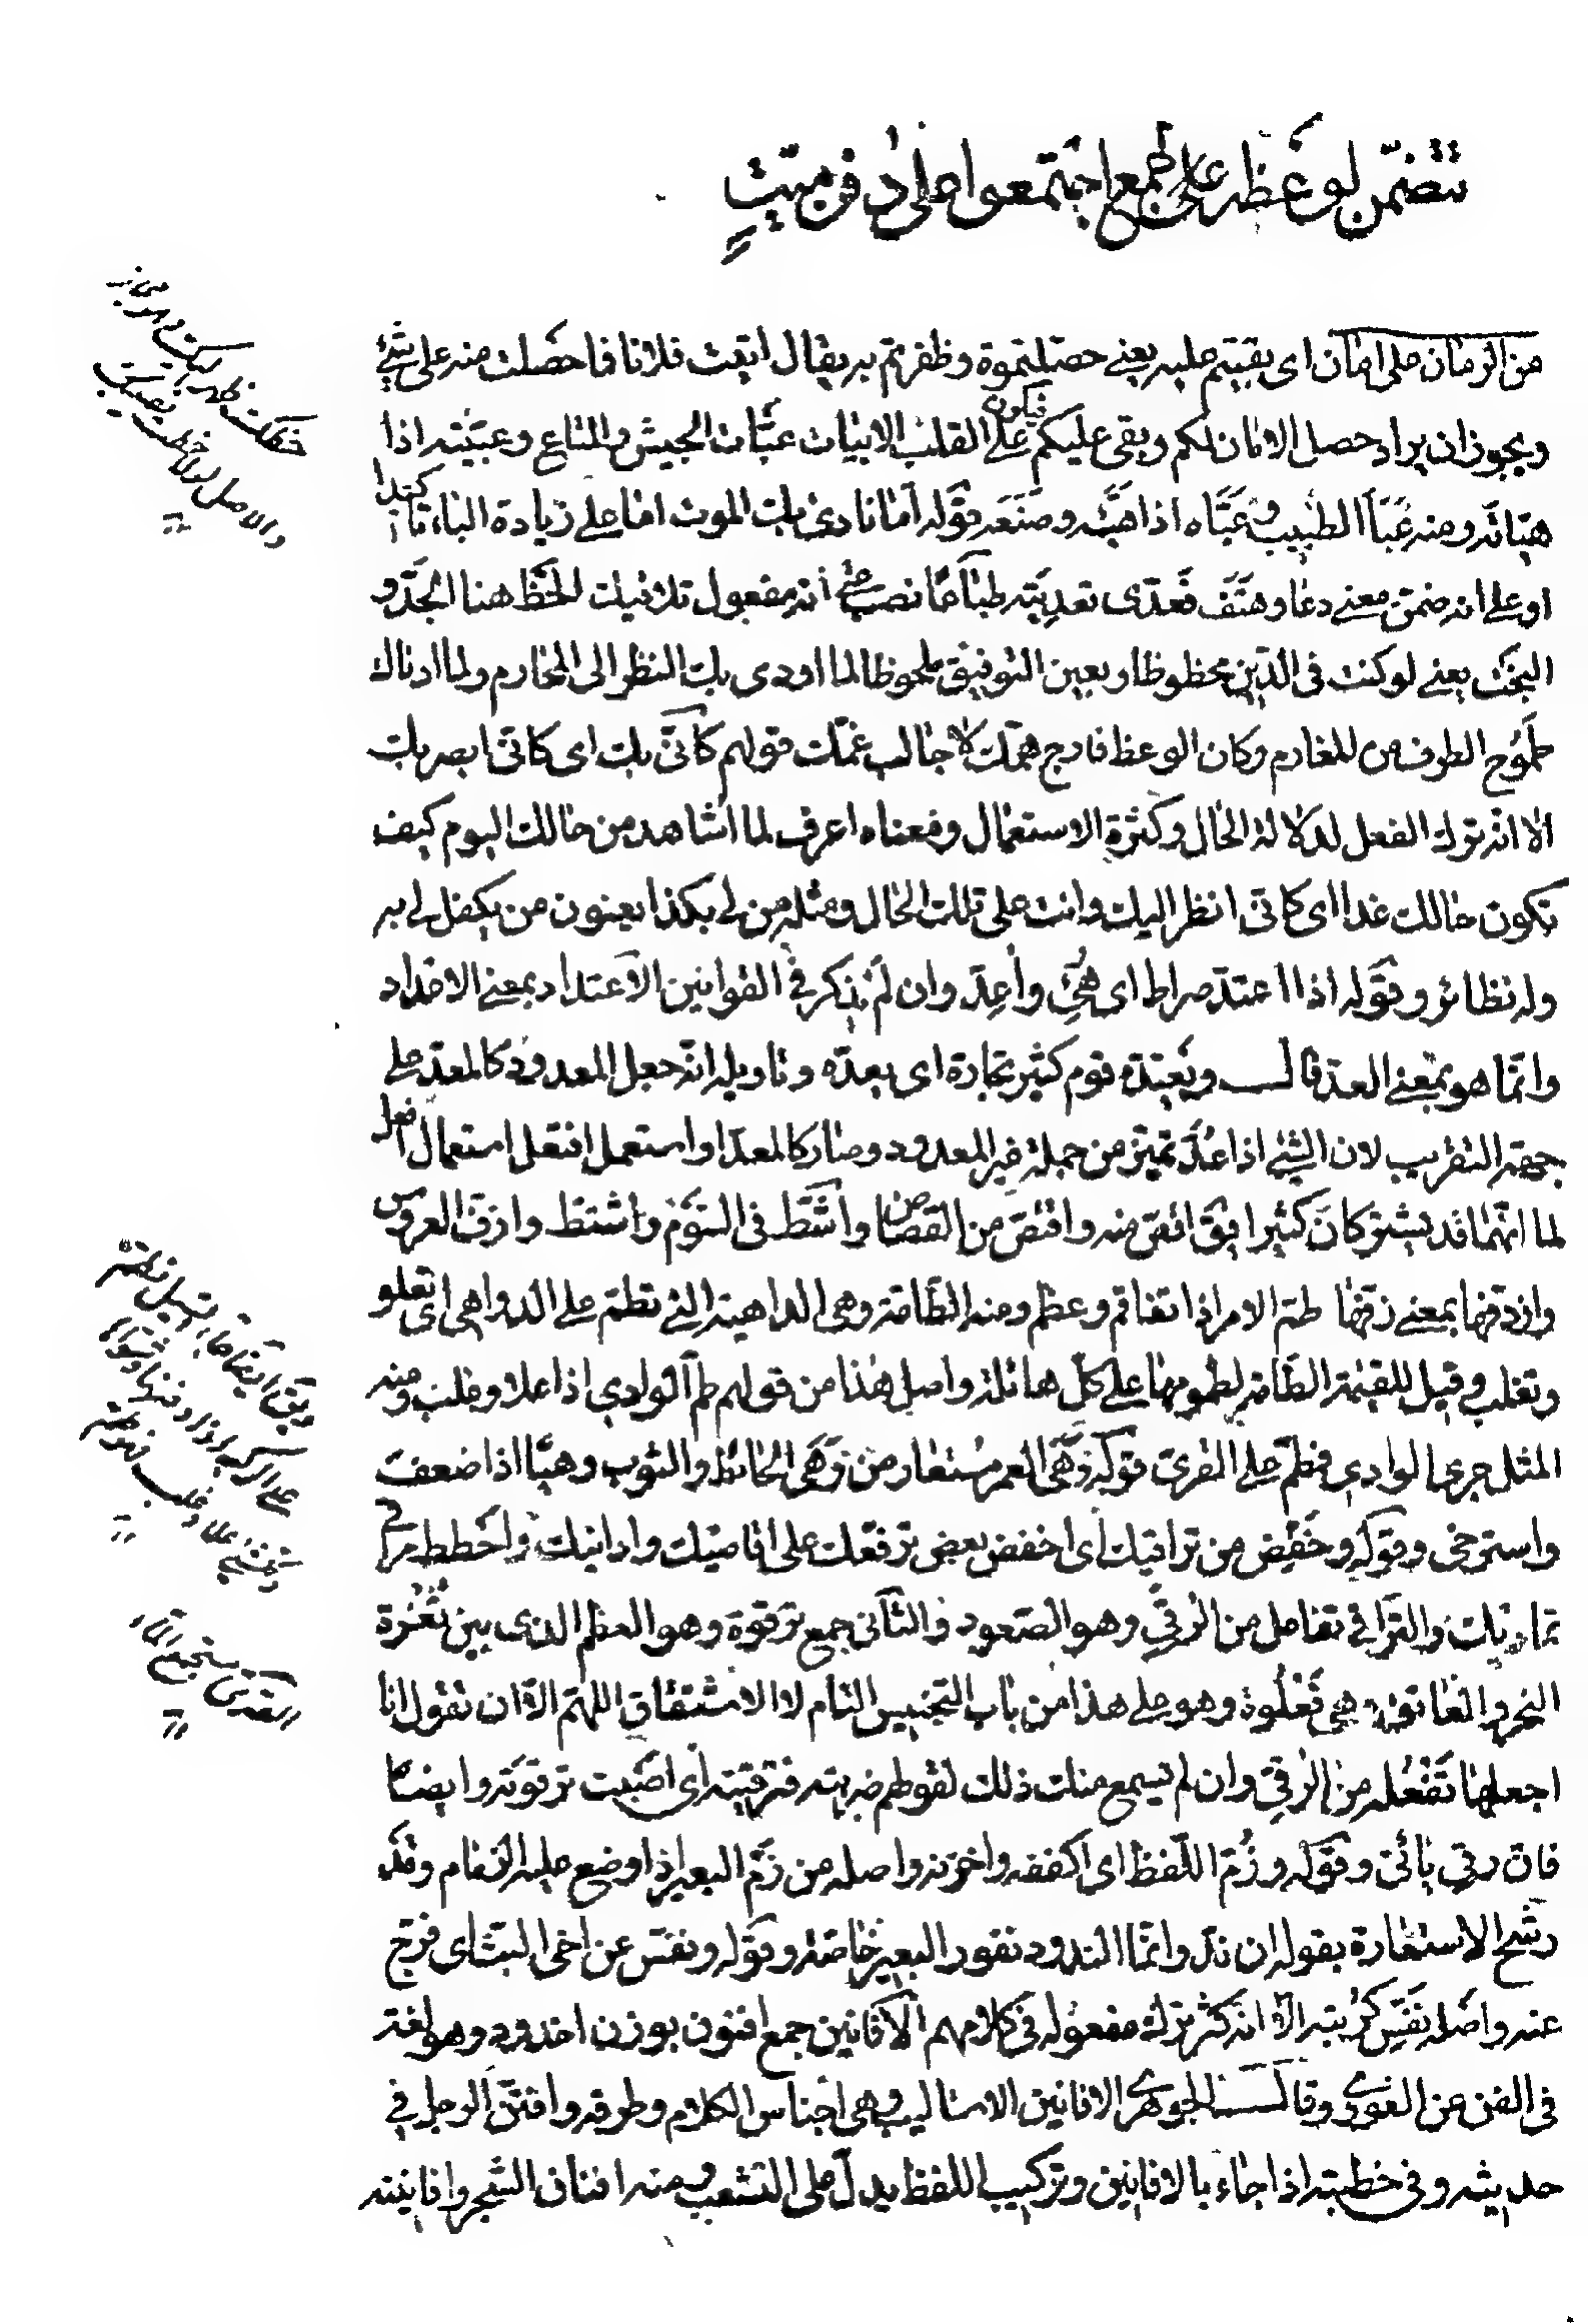 تتضمّن لوعظه على جمع اجتمعوا على دفن ميّتٍ
من الزمان على امان اى بقيتم عليه يعنى حصلتموه وظفرتم به يقال ابقيت فلانا فما حصلت منه على شئ
ويجوز ان يراد حصل الامان لكم وبقى عليكم فيكون على القلب الابيات عبّات الجيش والمتاع وعبّيته اذا
هيّاته ومنه عَبَأ الطيب وعبّاه اذا هيّئه وصنعه قوله اما نادى بك الموت اما على زيادة الباء
او على انه ضمّن معنى دعا وهتف فعدّى تعديته نصب على انه مفعول تلافيك الحَظّ هنا الجَدّ و
البخت يعنى لو كنت فى الدّين محظوظا وبعين التوفيق ملحوظا لما اودى بك النظر الى المحارم ولما ادناك
طموح الطرف من المغارم وكان الوعظ فارج همّك لا جالب غمّك قولهم كأنّى بك اى كانّى ابصر بك
الا انّه ترك الفعل لدلالة الحال وكثرة الاستعمال ومعناه اعرف لما اشاهد من حالك اليوم كيف
تكون حالك غدا اى كانّى انظر اليك وانت على تلك الحال ومثله من لى بكذا يعنون من يكفل لى به
وله نظائر وقوله اذا اعتدّ صراط اى هُيّئ واُعِدّ وان لم يذكر فى القوانين الاعتداد بمعنى الاعداد
وانّما هو بمعنى العدّ قال ويعتدّه قوم كثير تجارة اى يعدّه وتاويله انّه جعل المعدود كالمعدّ على
جهة التقريب لان الشئ اذا عُدّ تميّز من جملة غير المعدود وصار كالمعدّ او استعمل افتعل استعمال افعل
لما انّهما قد يشتركان كثيرا يقَ اقصّ منه واقتصّ من القصاص واشطّ فى السّوم واشتطّ وازفّ العروس
وازدفّها بمعنى زفّها طمّ الامر اذا تفاقم وعظم ومنه الطّامّة وهى الداهية التى تطمّ على الدواهى اى تعلو
وتغلب وقيل للقيمة الطامّة لطمومها على كلّ هائلة واصل هذا من قولهم طمّ الوادي اذا علا وغلب ومنه
المثل جرى الوادى فطمّ على القرىّ قوله وَهَى العمر مستعار من وَهَى الحائط والثوب وهيًا اذا ضعف
واسترخى وقوله وخفّض من تراقيك اى اخفض بعض ترفّعك على اقاصيك وادانيك واحطط من
تماديك والتراقى تفاعل من الرقيّ وهو الصّعود والثانى جمع ترقوة وهو العظم الذى بين ثُغْرة
النحر والعاتق هى فَعْلُوة وهو على هذا من باب التجنيس التام لا الاشتقاق اللهمّ الّا ان تقول انا
اجعلها تَفْعُلة من الرقيّ وان لم يسمع منك ذلك لقولهم ضربته فترقيته اى اصبت ترقوته وايضًا
فان رقى يائىّ وقوله وزُمّ اللّفظ اى اكففه واخزنه واصله من زمّ البعير اذا وضع عليه الزمام وقد
رشّح الاستعارة بقوله ان ندّ وانّما الندود نفور البعير خاصّة وقوله ونفّس عن اخى البثّ اى فرّج
عنه واصله نفّس كربته الّا انّه كثر ترك مفعوله فى كلامهم الافانين جمع افنون بوزن اخدود وهو لغة
فى الفن عن الغورى وقال الجوهرى الافانين الاساليب وهى اجناس الكلام وطرقه وافتنّ الرجل فى
حديثه وفى خطبته اذا جاء بالافانين وتركيب اللفظ يدلّ على التشعب ومنه افنان الشجر وافانينه